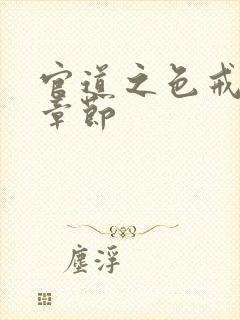 官道之色戒
章節
塵浮